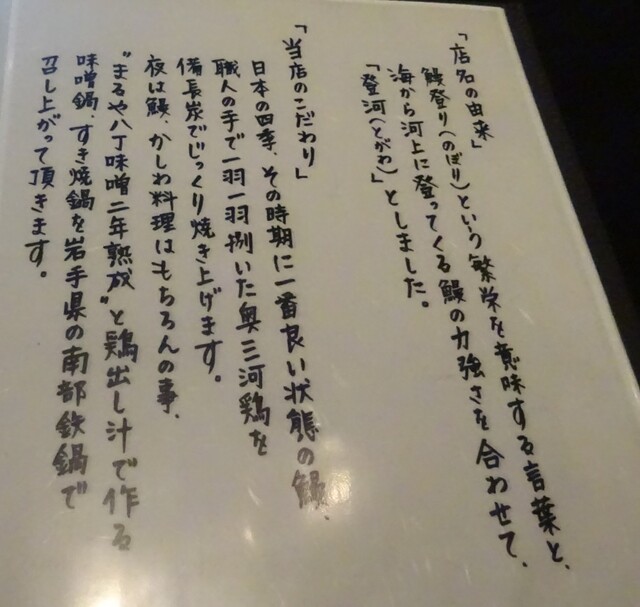 「店名の由来」
鰻登り(のぼり)という繁栄を意味する言葉と、
海から河上に登ってくる鰻の力強さを合わせて、
「登河(とがわ)」としました。
「当店のこだわり」
日本の四季、その時期に一番良い状態の鰻、
職人の手で一羽一羽捌いた奥三河鶏を
備長炭でじっくり焼き上げます。
夜は鰻、かしわ料理はもちろんの事、
"まるや八丁味噌二年熟成"と鶏出し汁で作る
味噌鍋、すき焼鍋を岩手県の南部鉄鍋で
召し上がって頂きます。